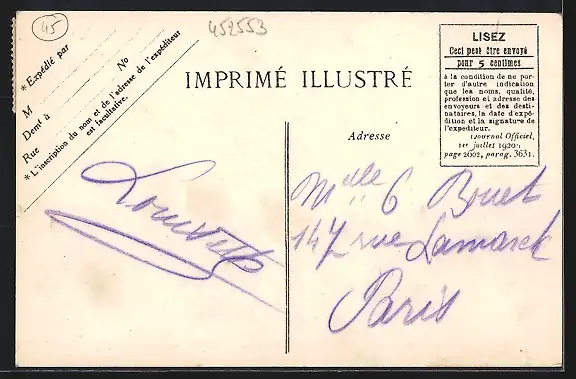 45
452553
* Expédié par
M
No
Demt à
Rue
* L'inscription du nom et de l'adresse de l'expéditeur
est facultative.
IMPRIMÉ ILLUSTRÉ
LISEZ
Ceci peut être envoyé
pour 5 centimes
à la condition de ne por-
ter d'autre indication
que les noms, qualité,
profession et adresse des
envoyeurs et des desti-
nataires, la date d'expé-
dition et la signature de
l'expediteur.
(Journal Officiel,
1er juillet 1920;
page 2002, parag. 3631.
Adresse
Mlle G Bouet
147 rue Lamarck
Paris